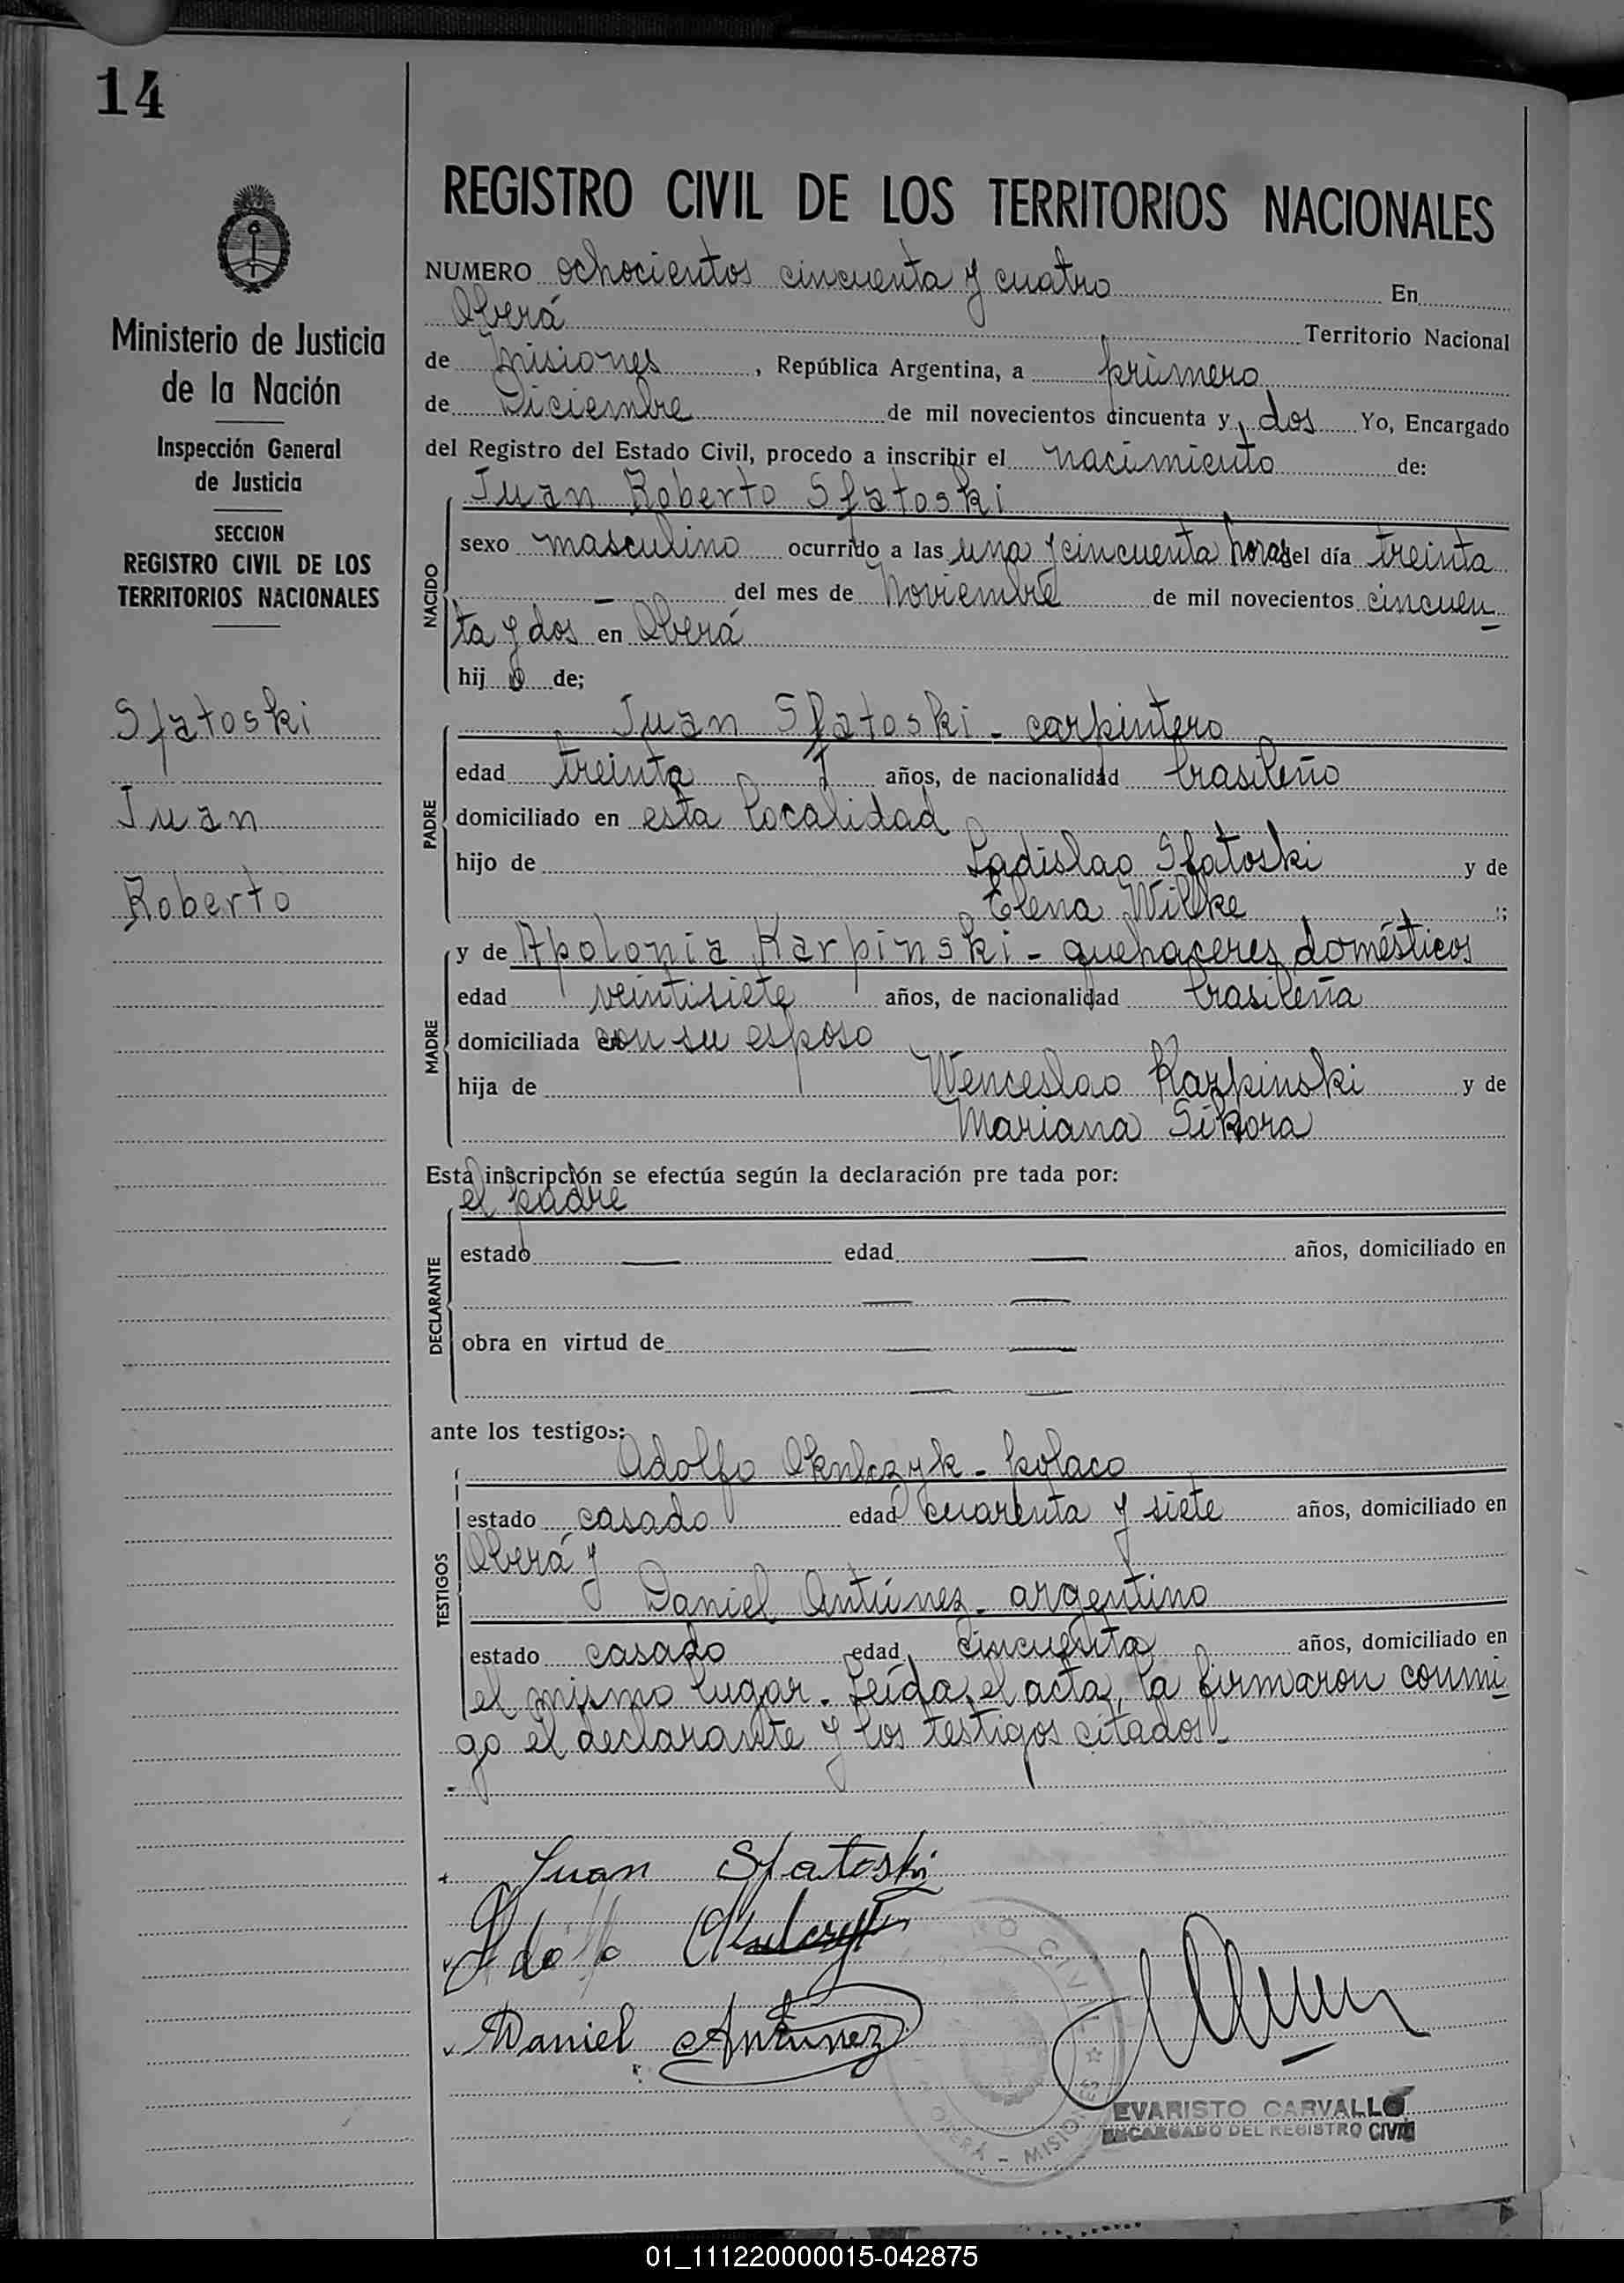 14
Ministerio de Justicia
de la Nación
Inspección General
de Justicia
SECCION
REGISTRO CIVIL DE LOS
TERRITORIOS NACIONALES
Sfatoski
Juan
Roberto
REGISTRO CIVIL DE LOS TERRITORIOS NACIONALES
NUMERO ochocientos cincuenta y cuatro En
Oberá Territorio Nacional
de Misiones, República Argentina, a primero
de Diciembre de mil novecientos cincuenta y dos Yo, Encargado
del Registro del Estado Civil, procedo a inscribir el nacimiento de:
Juan Roberto Sfatoski
NACIDO
sexo masculino ocurrido a las una y cincuenta horas del día treinta
— del mes de Noviembre de mil novecientos cincuen
ta y dos en Oberá
hij o de;
Juan Sfatoski - carpintero
PADRE
edad treinta años, de nacionalidad brasileño
domiciliado en esta localidad
hijo de Ladislao Sfatoski y de
Elena Wilke
y de Apolonia Karpinski - quehaceres domésticos
MADRE
edad veintisiete años, de nacionalidad brasileña
domiciliada con su esposo
hija de Wenceslao Karpinski y de
Mariana Sikora
Esta inscripción se efectúa según la declaración pre tada por:
el padre
DECLARANTE
estado — edad — años, domiciliado en
— —
obra en virtud de — —
— —
ante los testigos:
Adolfo Okulczyk - polaco
TESTIGOS
estado casado edad cuarenta y siete años, domiciliado en
Oberá y
Daniel Antúnez - argentino
estado casado edad cincuenta años, domiciliado en
el mismo lugar. Leída el acta, la firmaron conmi
go el declarante y los testigos citados.-
Juan Sfatoski
Adolfo Okulczyk
Daniel Antunez
OBERÁ - MISIONES
EVARISTO CARVALLO
ENCARGADO DEL REGISTRO CIVIL
01_111220000015-042875